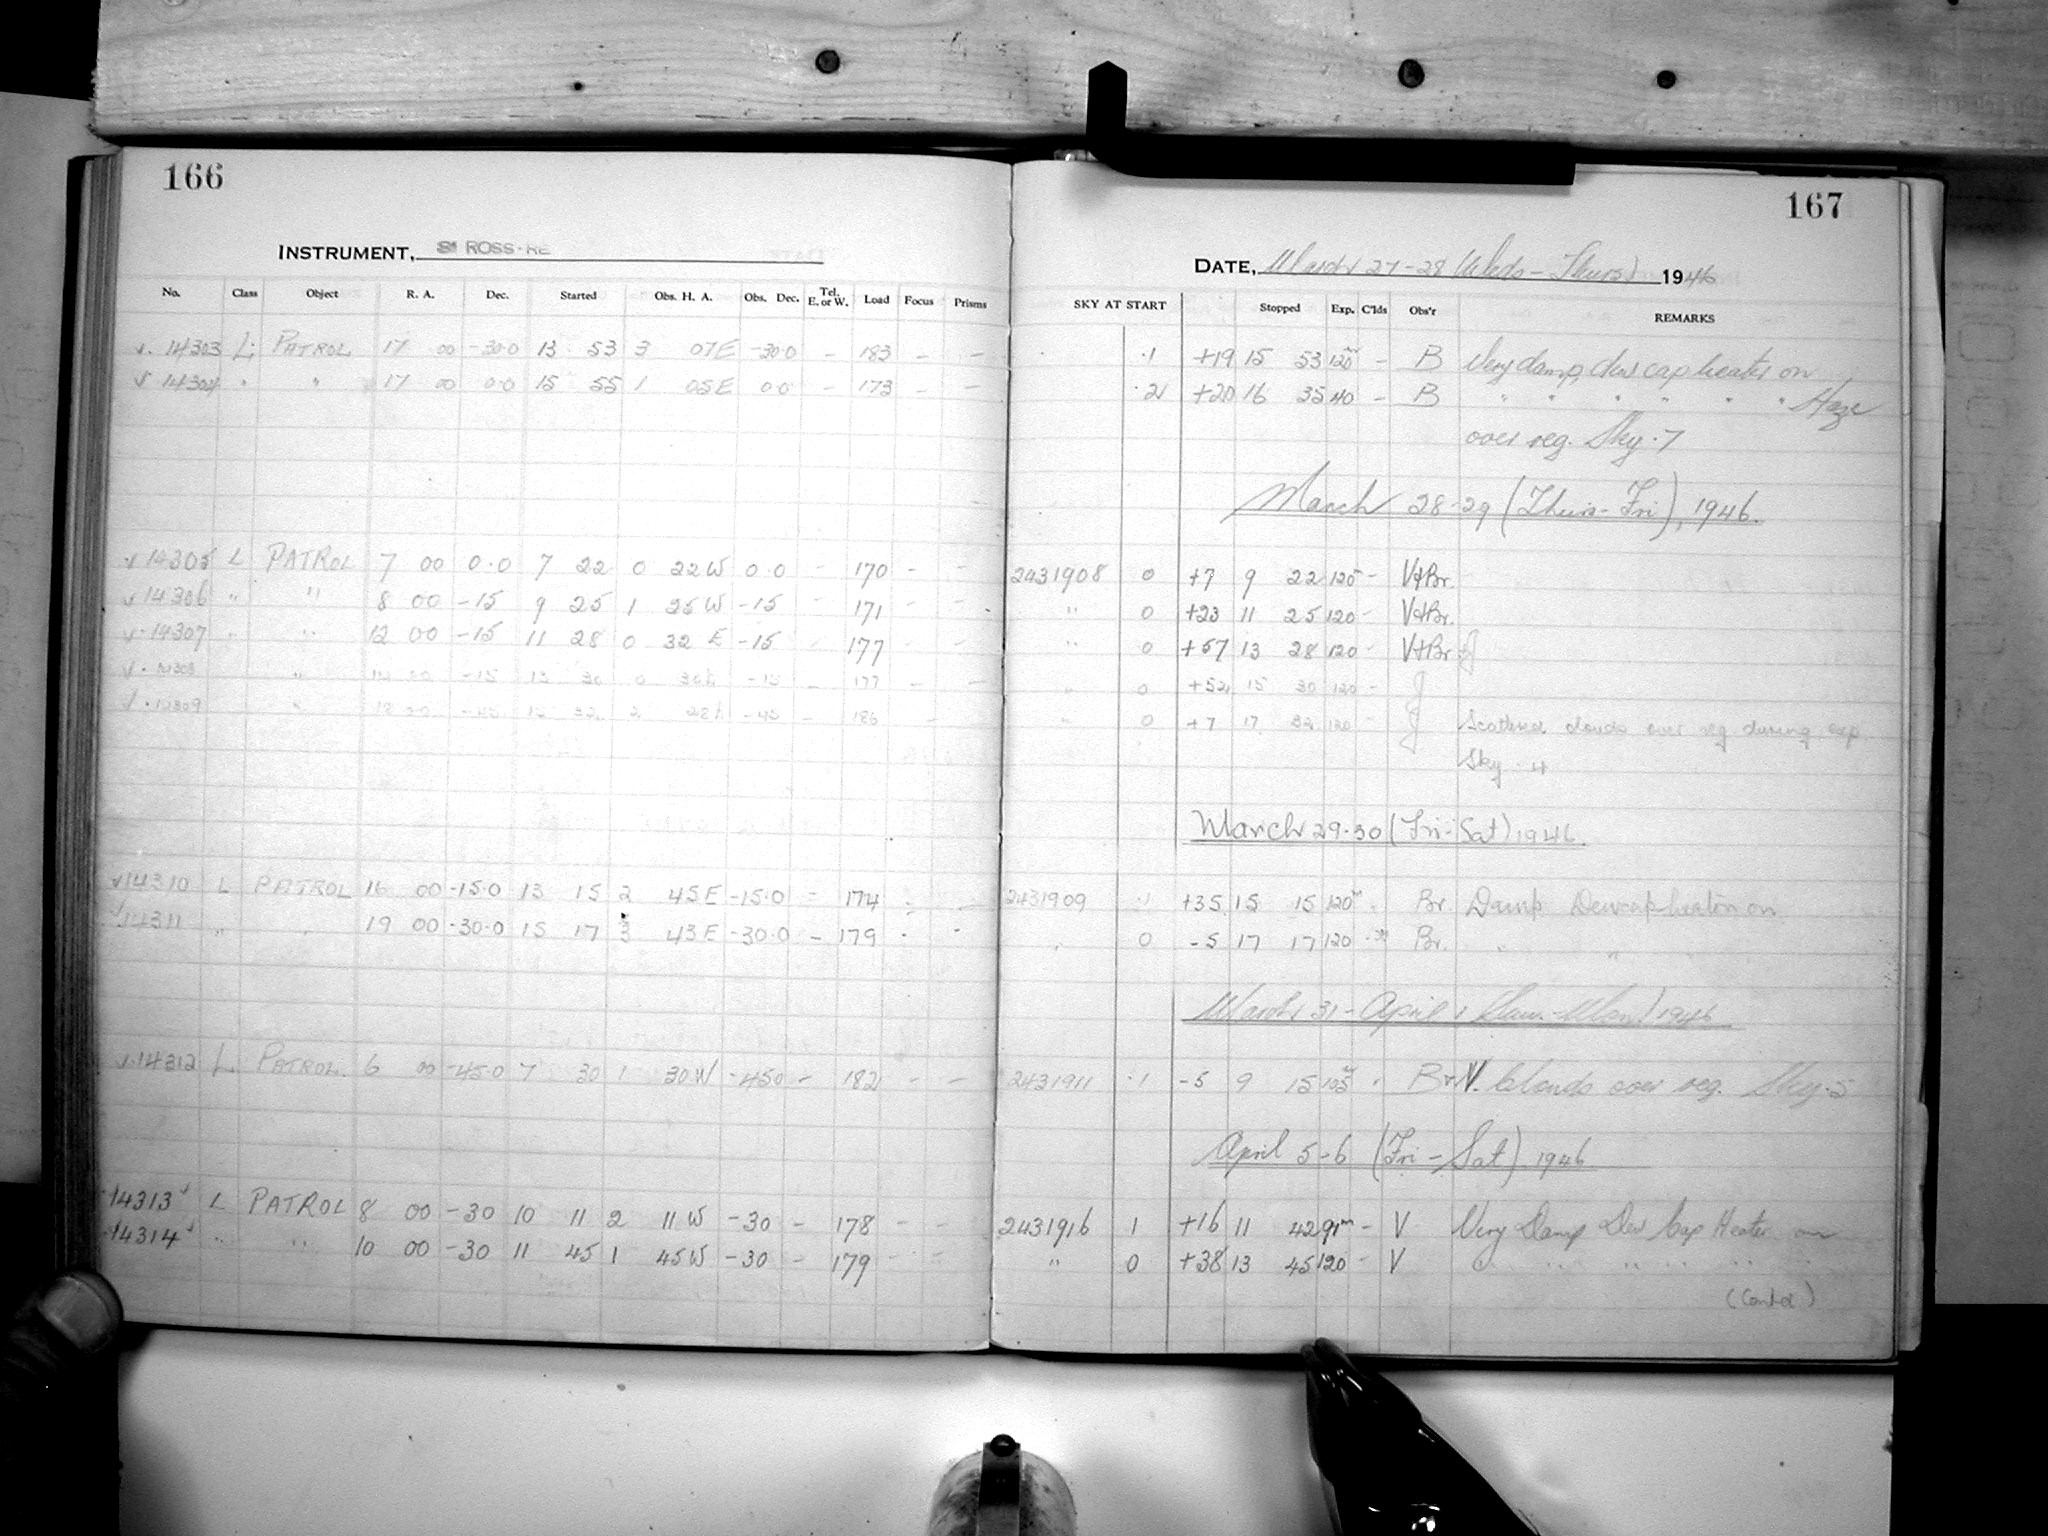 166
INSTRUMENT, ROSS-RE
No. Class Object R. A. Dec. Started Obs. H. A. Obs. Dec. Tel. E. or W. Load Focus Prisms
14303 L PATROL 17 00 -30.0 13 53 3 07E -30.0 - 183 - -
14304 " " 17 00 0.0 15 55 1 05E 0.0 - 173 - -
14305 L PATROL 7 00 0.0 7 22 0 22W 0.0 - 170 - -
14306 " " 8 00 -15 9 25 1 25W -15 - 171 - -
14307 " " 12 00 -15 11 28 0 32 E -15 - 177 - -
14308 " 14 00 -15 13 30 0 30E -15 - 177 - -
14309 " -45 32 2 28E -45 - 186 - -
14310 L PATROL 16 00 -15.0 13 15 2 45E -15.0 - 174 - -
14311 " " 19 00 -30.0 15 17 3 43E -30.0 - 179 - -
14312 L PATROL 6 00 -45.0 7 30 1 30W -45.0 - 182 - -
14313 L PATROL 8 00 -30 10 11 2 11W -30 - 178 - -
14314 " " 10 00 -30 11 45 1 45W -30 - 179 - -
167
DATE, March 27-28 (Weds-Thurs) 1946
SKY AT START Stopped Exp. C'lds Obs'r REMARKS
.1 +19 15 53 120 - B Very damp, dew cap heater on
.2 +20 16 35 40 - B " " " " " " Haze
over reg. Sky .7
March 28-29 (Thurs-Fri), 1946.
2431908 0 +7 9 22 120 - V+Br.
" 0 +23 11 25 120 - V+Br.
" 0 +57 13 28 120 - V+Br.
" 0 +52 15 30 120 - J
" 0 +7 17 32 120 - J Scattered clouds over reg during exp.
Sky .4
March 29-30 (Fri-Sat) 1946.
2431909 .1 +35 15 15 120 Br. Damp Dewcap heater on
" 0 -5 17 17 120 Br. " " "
March 31 - April 1 (Sun.-Mon.) 1946
2431911 .1 -5 9 15 105 Br V. Clouds over reg. Sky .5
April 5-6 (Fri-Sat) 1946
2431916 1 +16 11 42 91m - V Very Damp Dew Cap Heater on
" 0 +38 13 45 120 - V " " " " " "
(Contd)